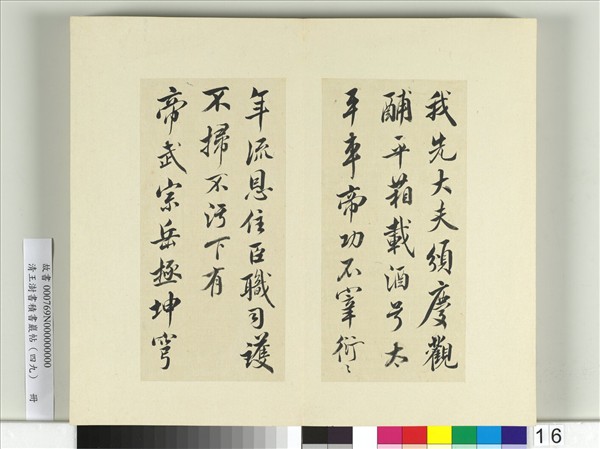 我先大夫頒慶觀
酺平箱載酒号太
平車帝功不宰衍〻
年流恩住臣職司護
不掃不污下有
帝武宗岳極坤穹
故書 000769N000000000
清王澍書積書巖帖(四九) 冊
16